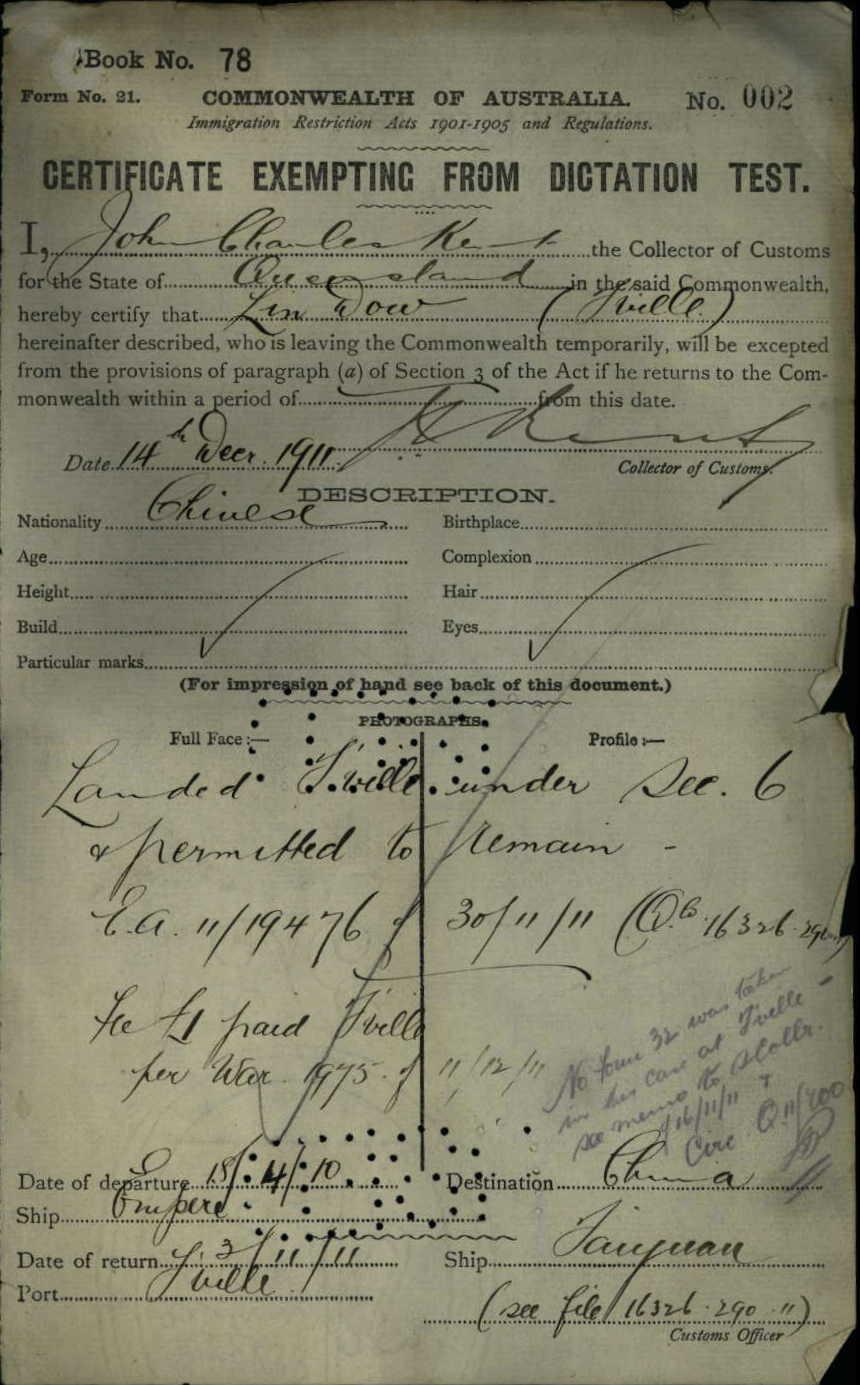 Book No. 78
Form No. 21. COMMONWEALTH OF AUSTRALIA. No. 002
Immigration Restriction Acts 1901-1905 and Regulations.
CERTIFICATE EXEMPTING FROM DICTATION TEST.
I, John Charles Kent the Collector of Customs
for the State of Queensland in the said Commonwealth,
hereby certify that Lin Dow (T'ville)
hereinafter described, who is leaving the Commonwealth temporarily, will be excepted
from the provisions of paragraph (a) of Section 3 of the Act if he returns to the Com-
monwealth within a period of from this date.
Date 14th Decr. 1911 Kent
Collector of Customs.
DESCRIPTION.
Nationality Chinese Birthplace
Age Complexion
Height Hair
Build Eyes
Particular marks
(For impression of hand see back of this document.)
PHOTOGRAPHS.
Full Face :— Profile :—
Landed T'ville under Sec. 6
& permitted to remain -
E.A. 11/19476 of 30/11/11 (Q.C. 16326.290.11)
Fee £1 paid T'ville
per War. 1975 of 11/12/11
No form 32 was taken
in his case at T'ville -
see memo to S/Collr.
16/11/11 &
Circ Q.11/400
Date of departure 18/4/10. Destination China
Ship Empire
Date of return 3/11/11 Ship Taiyuan
Port T'ville
(see file 16326.290.11)
Customs Officer